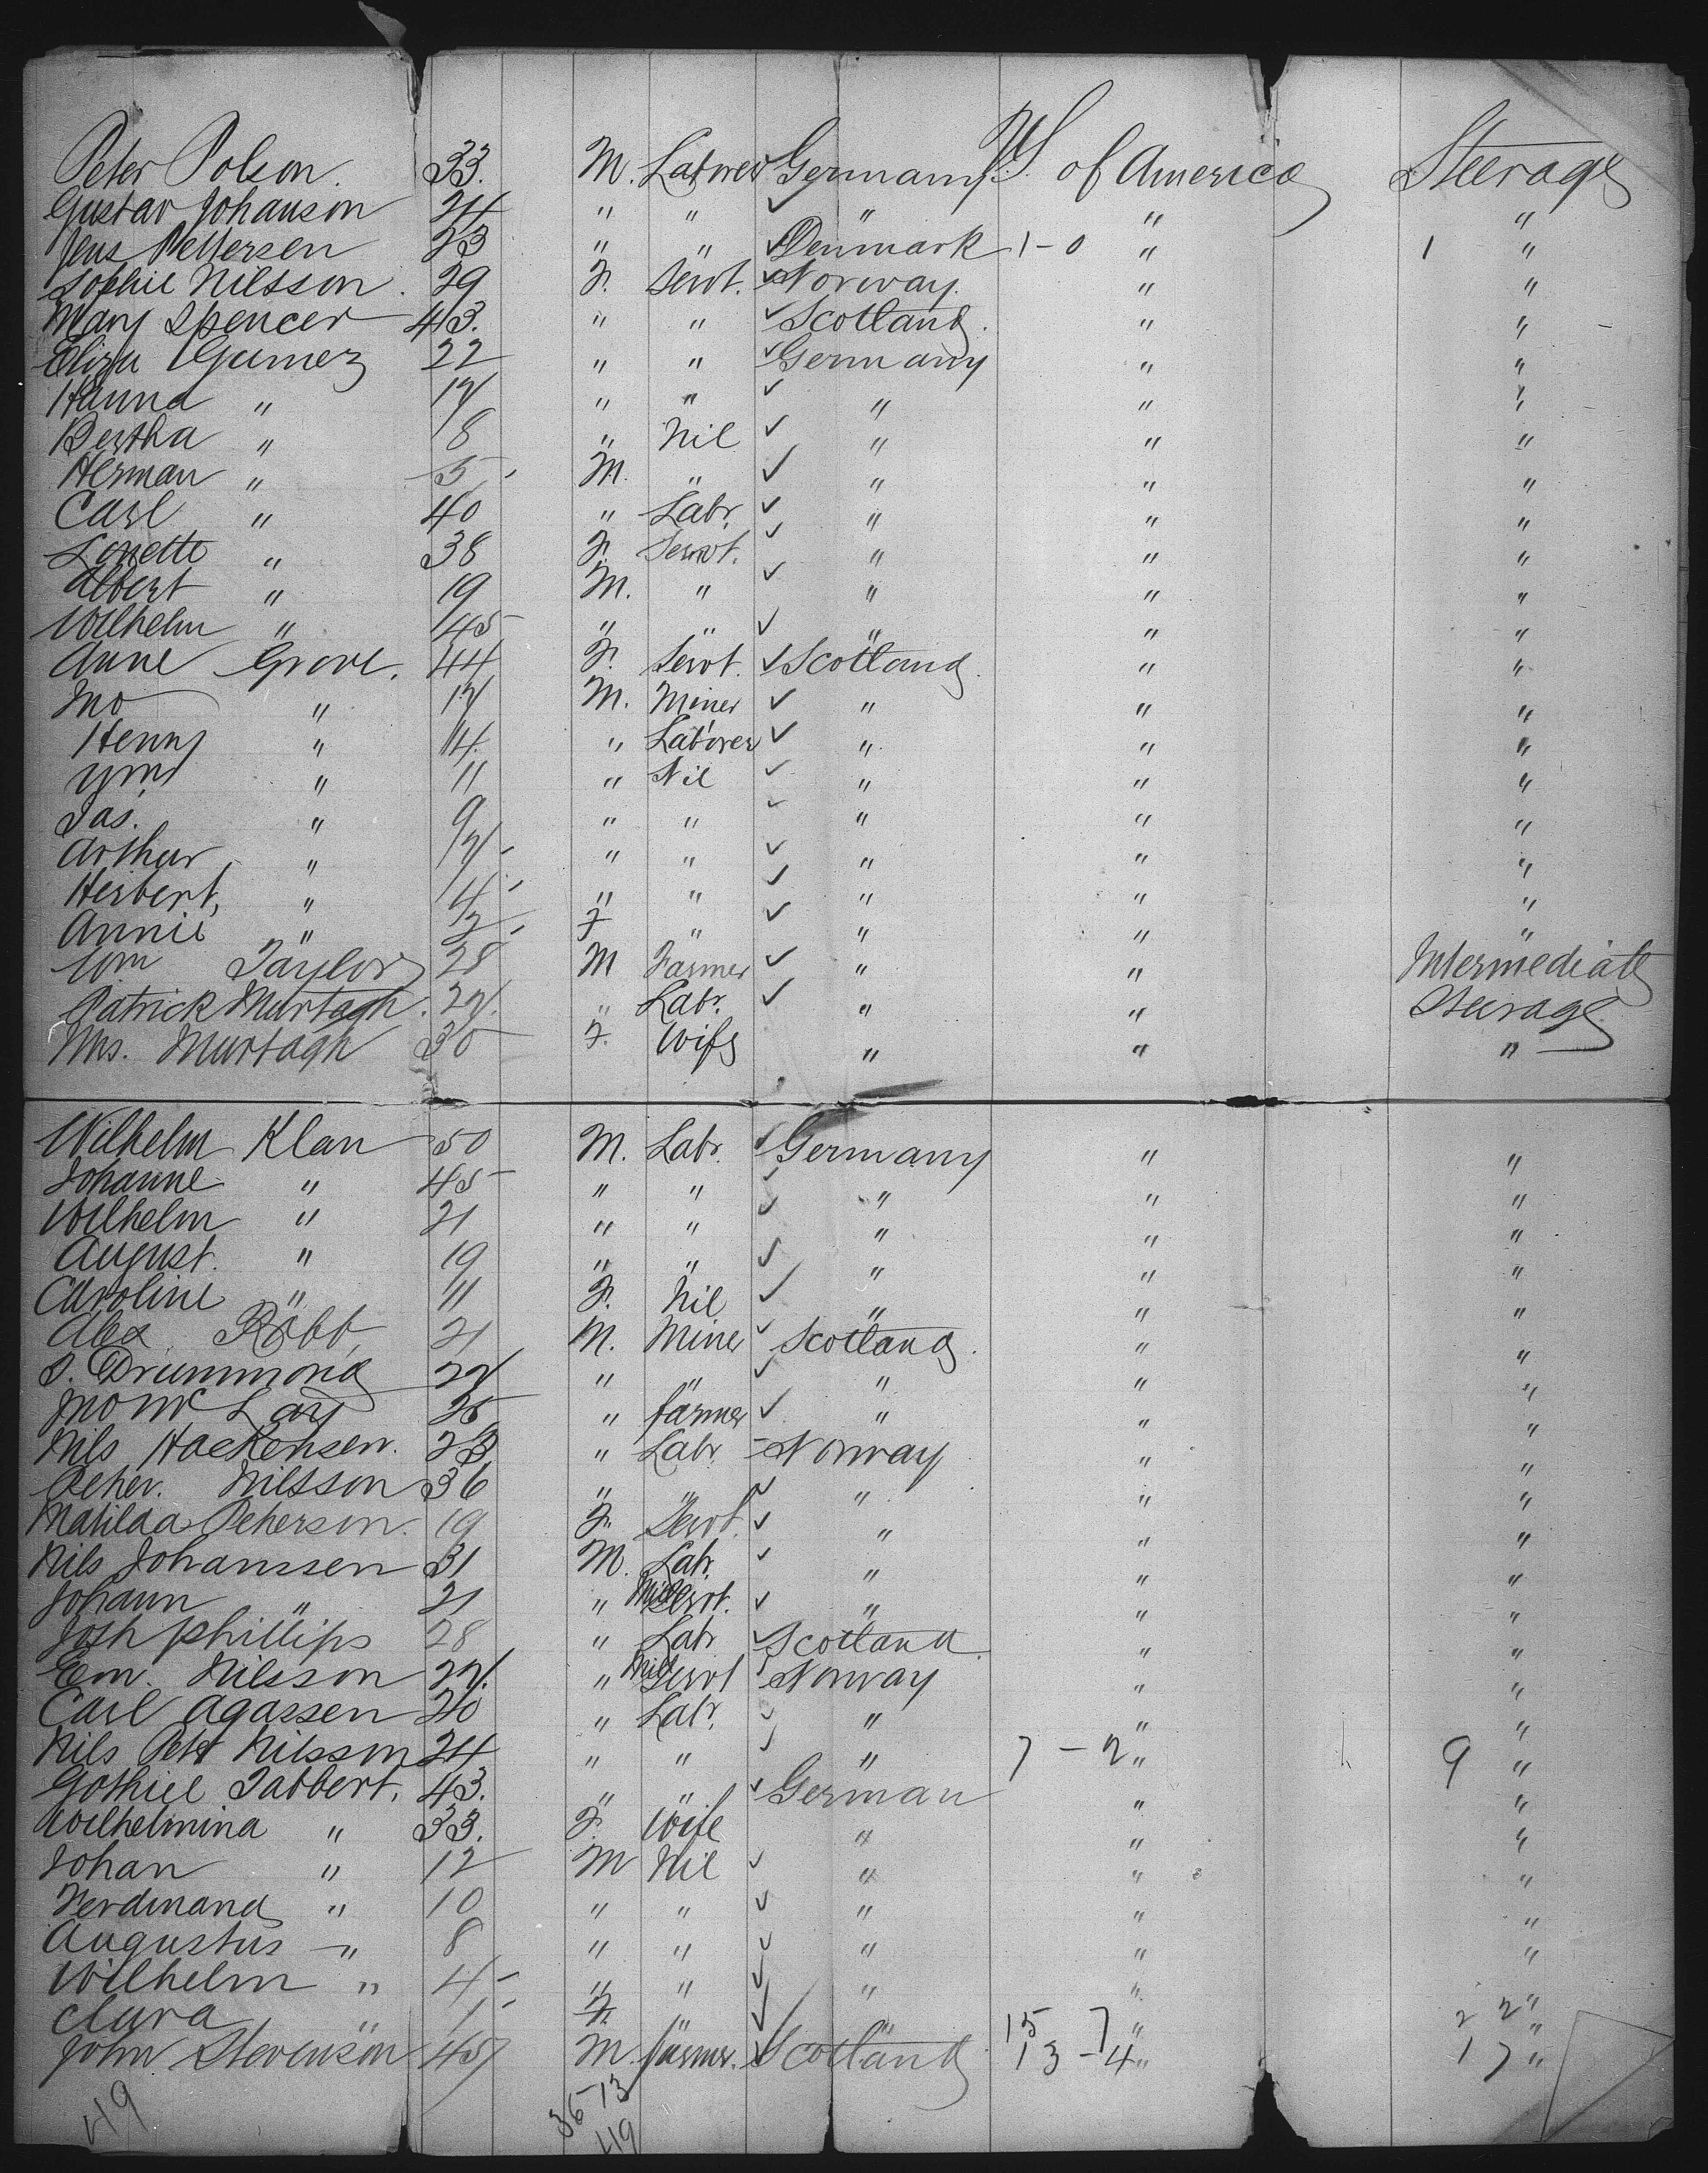 Peter Polson. 33. M. Labrer Germany U.S. of America Steerage
Gustav Johanson 24 " " ✓ " " "
Jens Pettersen 23 " " ✓ Denmark 1-0 " 1 "
Sophie Nilsson. 29 F. Servt. ✓ Norway. " "
Mary Spencer 43. " " ✓ Scotland. " "
Eliza Gumez 22 " " ✓ Germany " "
Hanna " 17 " " ✓ " " "
Bertha " 8 " Nil ✓ " " "
Herman " 5 M. " ✓ " " "
Carl " 40 " Labr. ✓ " " "
" 38 F. Servt. ✓ " " "
Albert " 19 M. " ✓ " " "
Wilhelm " 45 " " ✓ " " "
Anne Grove. 44 F. Servt. ✓ Scotland. " "
Jno " 17 M. Miner ✓ " " "
Henry " 14. " Laborer ✓ " " "
Wm " 11 " Nil ✓ " " "
Jas. " 9 " " ✓ " " "
Arthur " 7 " " ✓ " " "
Herbert, " 4 " " ✓ " " "
Annie " 2 F " ✓ " " "
Wm Taylor 28 M Farmer ✓ " " Intermediate
Patrick Murtagh. 27. " Labr. ✓ " " Steerage
Mrs. Murtagh 30 F. Wife " " "
Wilhelm Klan 50 M. Labr. ✓ Germany " "
Johanne " 45 " " ✓ " " "
Wilhelm " 21 " " ✓ " " "
August. " 19 " " ✓ " " "
Caroline " 11 F. Nil ✓ " " "
Alex Robb, 21 M. Miner ✓ Scotland. " "
Drummond 27 " " ✓ " " "
Jno Mc Lay 25 " farmer ✓ " " "
Nils Hackensen. 23 " Labr. - Norway " "
Peher. Nilsson 36 " " ✓ " " "
Matilda Peherson. 19 F. Servt. ✓ " " "
Nils Johanssen 31 M. Labr. ✓ " " "
Johann " 21 " Servt. ✓ " " "
Josh Phillips 28 " Labr ✓ Scotland " "
Em. Nilsson 27. " Servt ✓ Norway " "
Carl Agassen 20 " Labr. ✓ " " "
Nils Petr Nilsson 24 " " ✓ " 7 - 2 " 9 "
Gothiel Tabbert. 43. " " ✓ German " "
Wilhelmina " 33. F. Wife " " "
Johan " 12 M Nil ✓ " " "
Ferdinand " 10 " " ✓ " " "
Augustus " 8 " " ✓ " " "
Wilhelm " 4 " " ✓ " " "
Clara " 1 F. " ✓ " 15 7 " 22 "
John Stevenson 45 M. farmr. ✓ Scotland 13 - 4 " 17 "
49 36-13
49